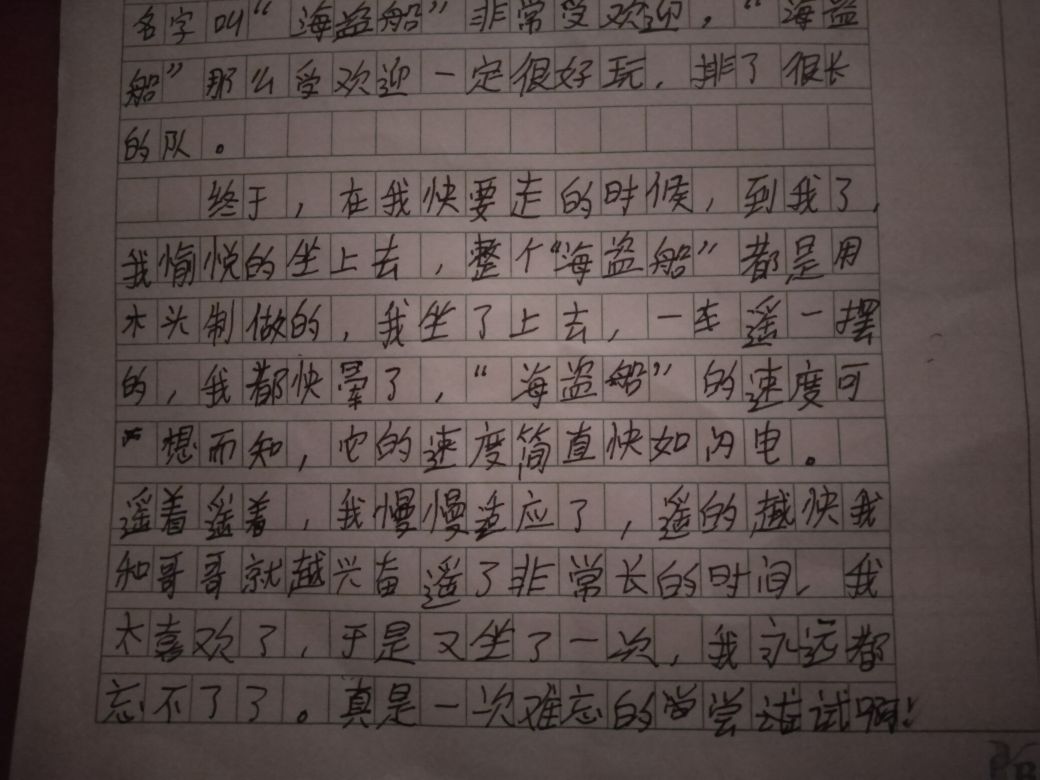 名字叫“海盗船”非常受欢迎，“海盗
船”那么受欢迎一定很好玩，排了很长
的队。
终于，在我快要走的时候，到我了，
我愉悦的坐上去，整个“海盗船”都是用
木头制做的，我坐了上去，一车遥一摆
的，我都快晕了，“海盗船”的速度可
想而知，它的速度简直快如闪电。
遥着遥着，我慢慢适应了，遥的越快我
和哥哥就越兴奋遥了非常长的时间，我
太喜欢了，于是又坐了一次，我永远都
忘不了了。真是一次难忘的尝试啊！